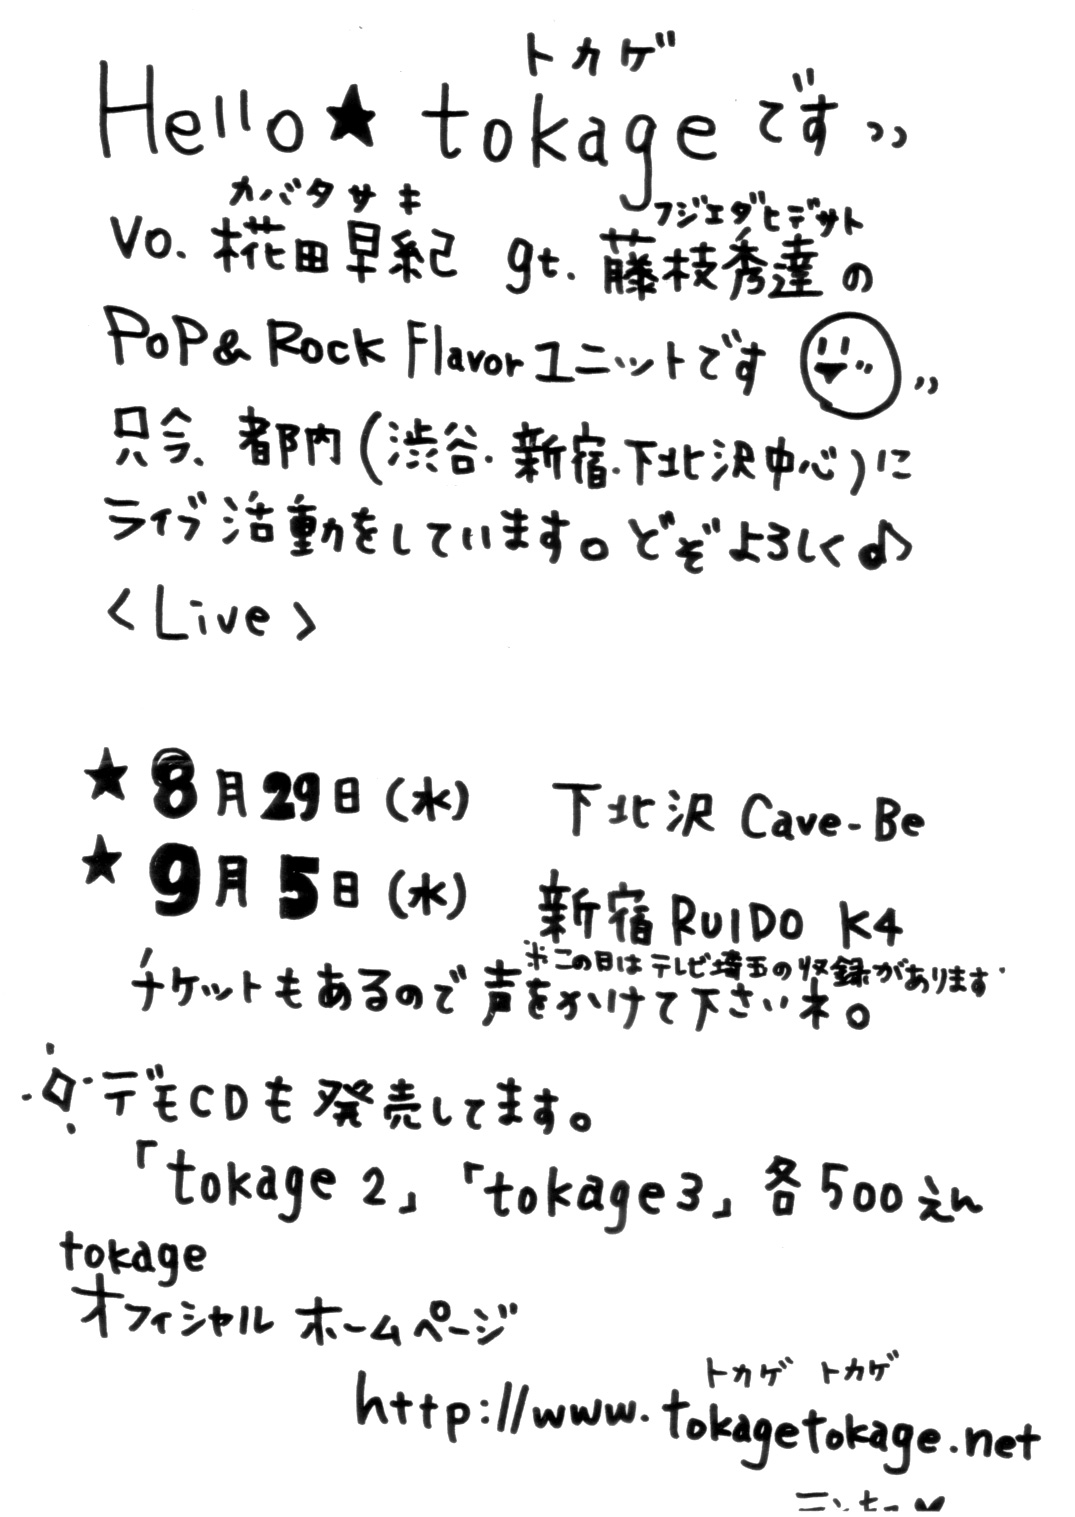 トカゲ
Hello★ tokage です〃
カバタサキ フジエダヒデサト
Vo. 椛田早紀 gt. 藤枝秀達の
PoP& Rock Flavor ユニットです 〃
只今、都内(渋谷・新宿・下北沢中心)に
ライブ活動をしています。どぞよろしく♪
<Live>
★ 8月29日(水) 下北沢 Cave-Be
★ 9月 5日(水) 新宿 RUIDO K4
※この日はテレビ埼玉の収録があります
チケットもあるので声をかけて下さいネ。
デモCDも発売してます。
「tokage 2」「tokage3」各500えん
tokage
オフィシャル ホームページ
トカゲ トカゲ
http://www.tokagetokage.net